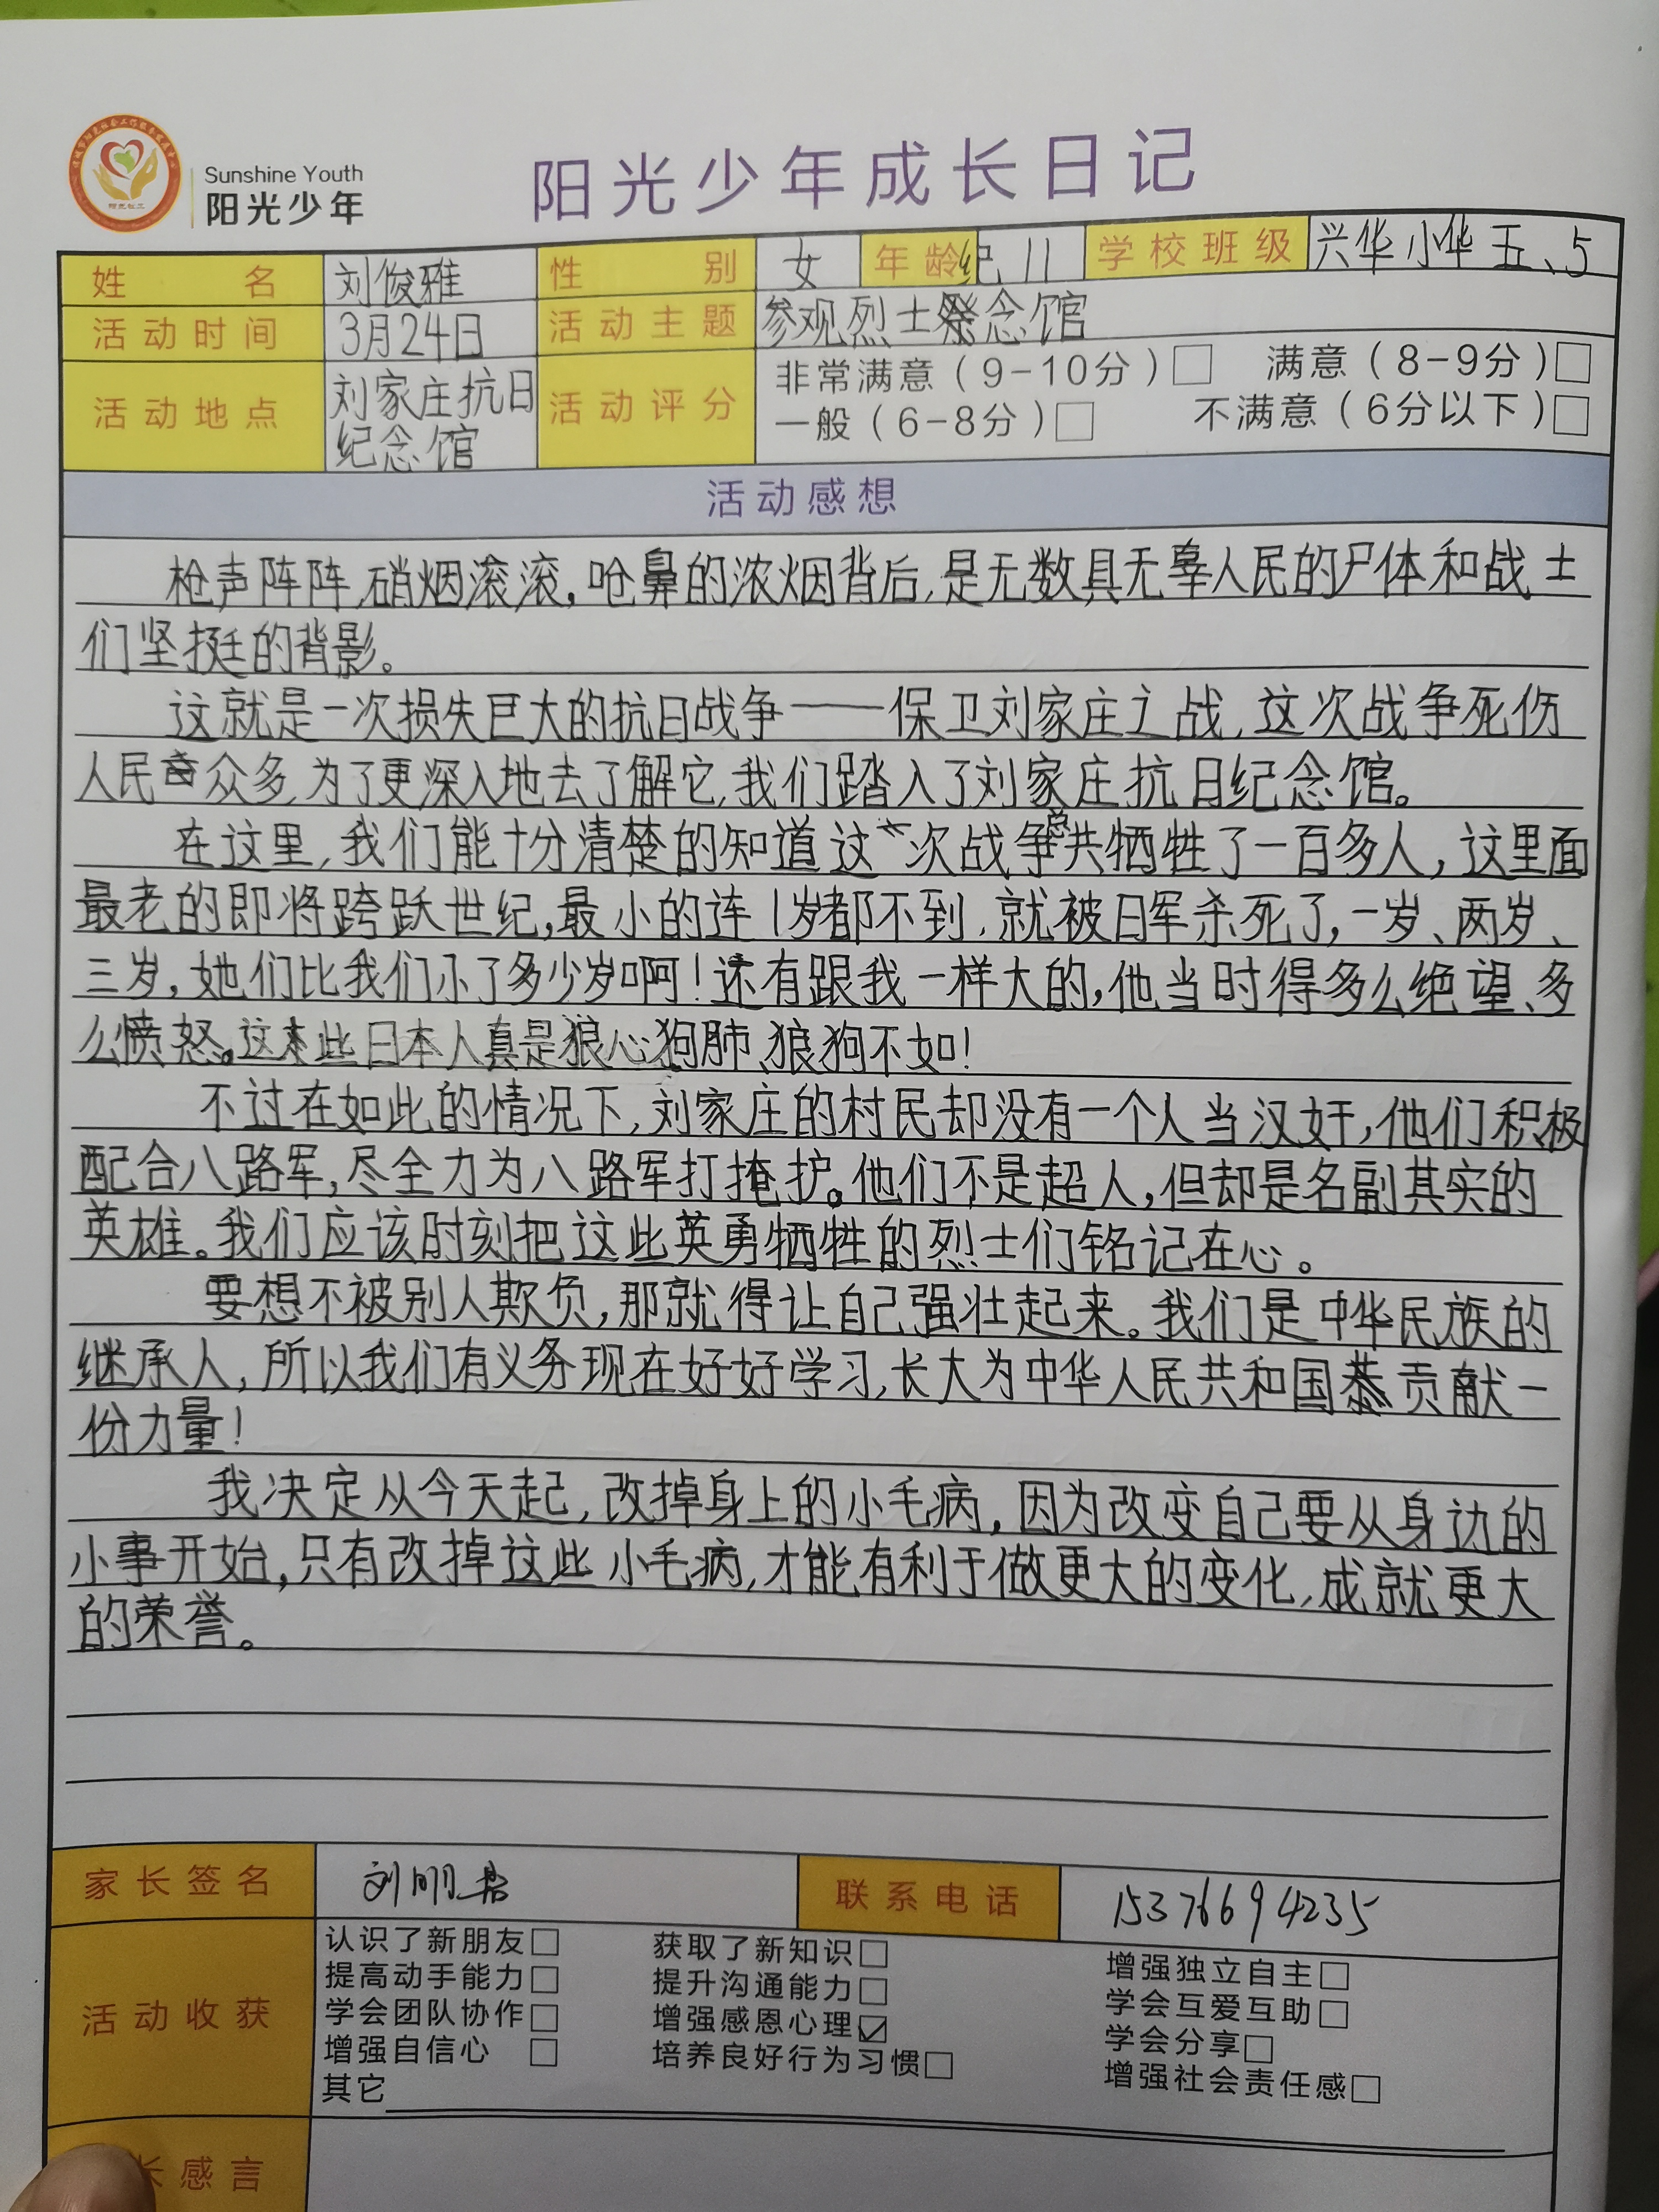 Sunshine Youth
阳光少年
阳光少年成长日记
姓名 刘俊雅 性别 女 年龄 纪 11 学校班级 兴华小华 五、5
活动时间 3月24日 活动主题 参观烈士祭念馆
活动地点 刘家庄抗日纪念馆 活动评分 非常满意(9-10分)□ 满意(8-9分)□
一般(6-8分)□ 不满意(6分以下)□
活动感想
枪声阵阵,硝烟滚滚,呛鼻的浓烟背后,是无数具无辜人民的尸体和战士
们坚挺的背影。
这就是一次损失巨大的抗日战争——保卫刘家庄之战,这次战争死伤
人民众多,为了更深入地去了解它,我们踏入了刘家庄抗日纪念馆。
在这里,我们能十分清楚的知道这次战争总共牺牲了一百多人,这里面
最老的即将跨跃世纪,最小的连1岁都不到,就被日军杀死了,一岁、两岁、
三岁,她们比我们小了多少岁啊!还有跟我一样大的,他当时得多么绝望、多
么愤怒。这些日本人真是狼心狗肺、狼狗不如!
不过在如此的情况下,刘家庄的村民却没有一个人当汉奸,他们积极
配合八路军,尽全力为八路军打掩护。他们不是超人,但却是名副其实的
英雄。我们应该时刻把这些英勇牺牲的烈士们铭记在心。
要想不被别人欺负,那就得让自己强壮起来。我们是中华民族的
继承人,所以我们有义务现在好好学习,长大为中华人民共和国贡献一
份力量!
我决定从今天起,改掉身上的小毛病,因为改变自己要从身边的
小事开始,只有改掉这些小毛病,才能有利于做更大的变化,成就更大
的荣誉。
家长签名 刘明 联系电话 15376694235
活动收获
认识了新朋友□ 获取了新知识□ 增强独立自主□
提高动手能力□ 提升沟通能力□ 学会互爱互助□
学会团队协作□ 增强感恩心理☑ 学会分享□
增强自信心 □ 培养良好行为习惯□ 增强社会责任感□
其它
长感言